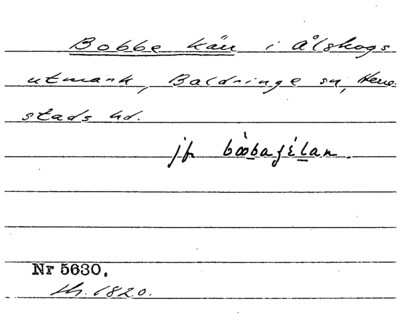 Bobbe kärr i Ålskogs
utmark, Baldringe sn, Herre-
stads hd.
jfr bòobajélan.
Nr 5630.
1820.